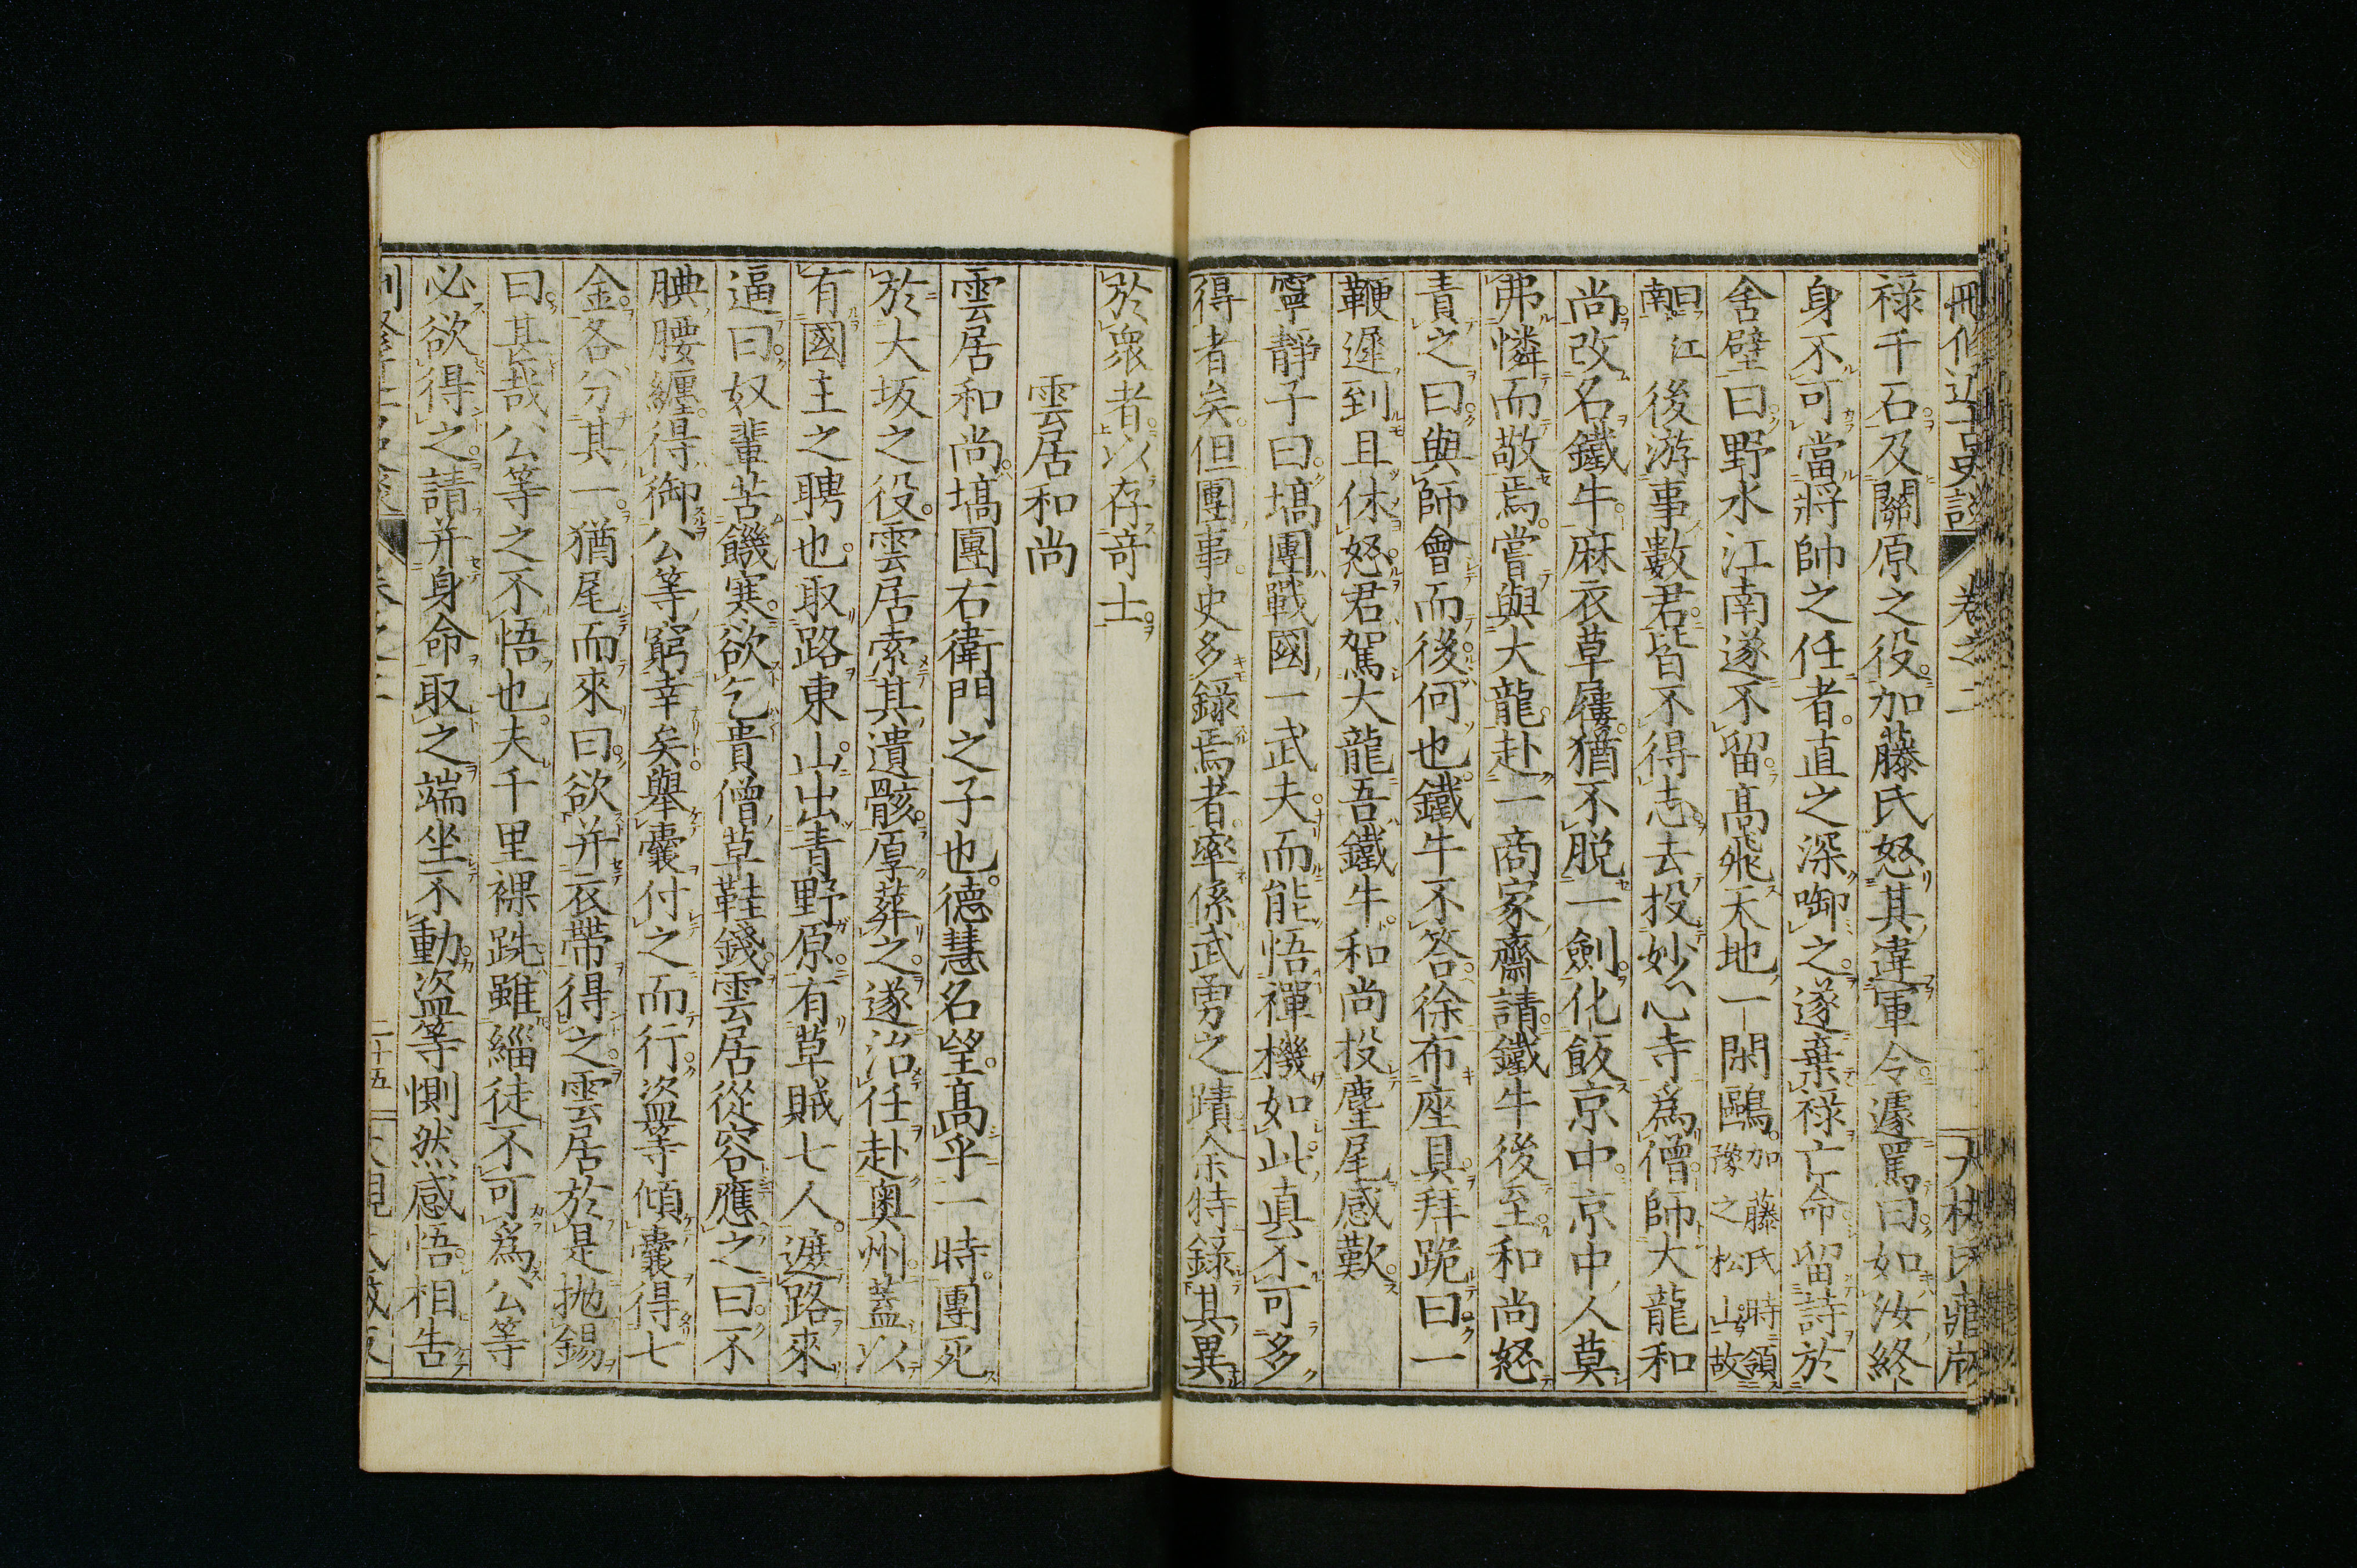 刪修近古史談 卷之二 大槻氏藏版
祿千石及關原之役加藤氏怒其違軍令遽罵曰如汝終
身不可當將帥之任者直之深啣之遂棄祿亡命留詩於
舍壁曰野水江南遂不留高飛天地一閑鷗加藤氏時領豫之松山故
曰江南江後游事數君皆不得志去投妙心寺爲僧師大龍和
尚改名鐵牛麻衣草屨猶不脱一劍化飯京中京中人莫
弗憐而敬焉嘗與大龍赴一商家齋請鐵牛後至和尚怒
責之曰與師會而後何也鐵牛不答徐布座具拜跪曰一
鞭遲到且休怒君駕大龍吾鐵牛和尚投麈尾感歎
寧靜子曰塙團戰國一武夫而能悟禪機如此真不可多
得者矣但團事史多錄焉者率係武勇之蹟余特錄其異
於衆者以存奇士
雲居和尚
雲居和尚塙團右衛門之子也德慧名望高乎一時團死
於大坂之役雲居索其遺骸厚葬之遂治任赴奥州蓋以
有國主之聘也取路東山出青野原有草賊七人遮路來
逼曰奴輩苦饑寒欲乞貴僧草鞋錢雲居從容應之曰不
腆腰纏得御公等窮幸矣舉囊付之而行盜等傾囊得七
金各分其一猶尾而來曰欲并衣帶得之雲居於是抛錫
曰甚哉公等之不悟也夫千里裸跣雖緇徒不可爲公等
必欲得之請并身命取之端坐不動盜等惻然感悟相告
二十五